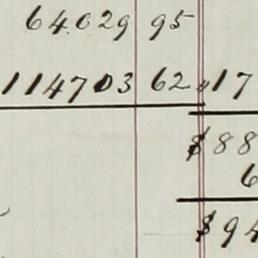 64029 95
114703 62 " 17
$ 88
6
$ 94